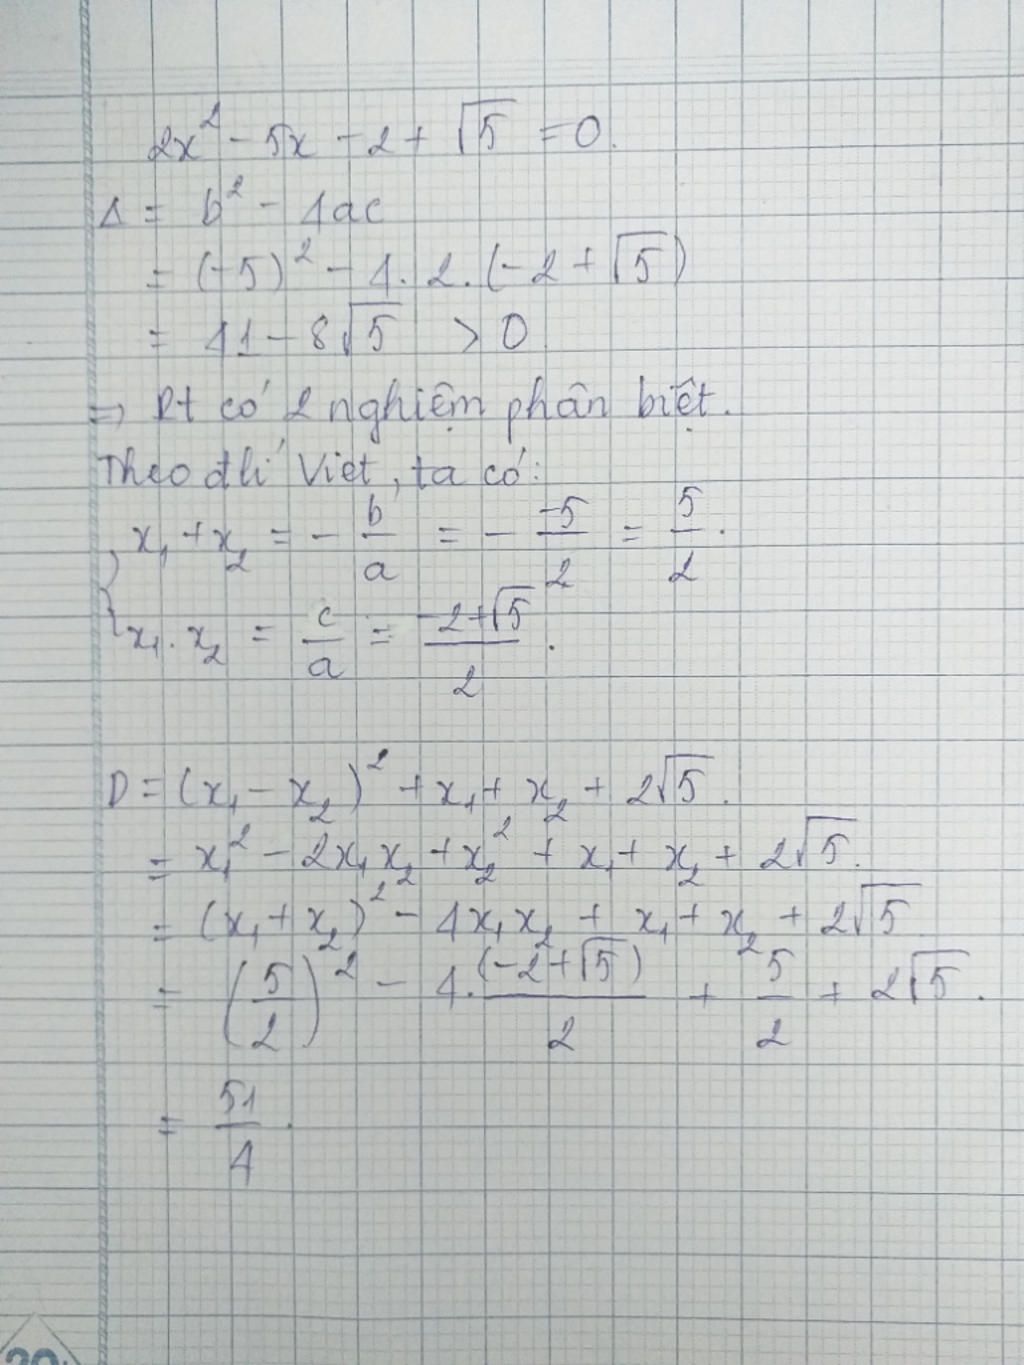 2x² - 5x - 2 + √5 = 0.
Δ = b² - 4ac
= (-5)² - 4. 2. (-2 + √5)
= 41 - 8√5 > 0
=> Pt có 2 nghiệm phân biệt.
Theo đlí Viét, ta có:
{ x₁ + x₂ = - b/a = - -5/2 = 5/2.
x₁. x₂ = c/a = -2+√5/2.
D = (x₁ - x₂)² + x₁ + x₂ + 2√5.
= x₁² - 2x₁x₂ + x₂² + x₁ + x₂ + 2√5.
= (x₁ + x₂)² - 4x₁x₂ + x₁ + x₂ + 2√5
= (5/2)² - 4. (-2+√5)/2 + 5/2 + 2√5.
= 51/4.